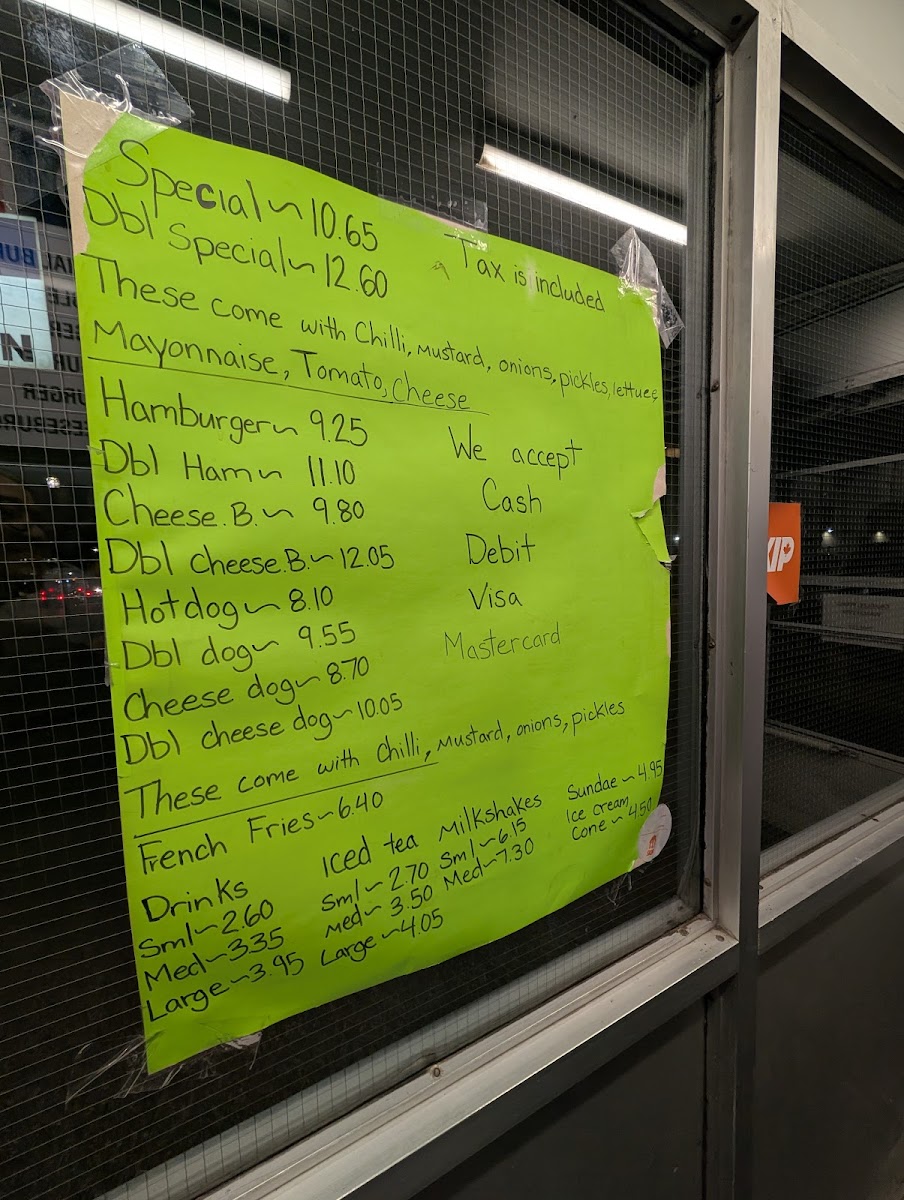 Special ~ 10.65
Dbl Special ~ 12.60
Tax is included
These come with Chilli, mustard, onions, pickles, lettuce
Mayonnaise, Tomato, Cheese
Hamburger ~ 9.25
Dbl Ham ~ 11.10
Cheese.B. ~ 9.80
Dbl cheese.B. ~ 12.05
Hotdog ~ 8.10
Dbl dog ~ 9.55
Cheese dog ~ 8.70
Dbl cheese dog ~ 10.05
We accept
Cash
Debit
Visa
Mastercard
These come with Chilli, Mustard, onions, pickles
French Fries ~ 6.40
Drinks
Sml ~ 2.60
Med ~ 3.35
Large ~ 3.95
Iced tea
Sml ~ 2.70
med ~ 3.50
Large ~ 4.05
Milkshakes
Sml ~ 6.15
Med ~ 7.30
Sundae ~ 4.95
Ice cream
Cone ~ 4.50